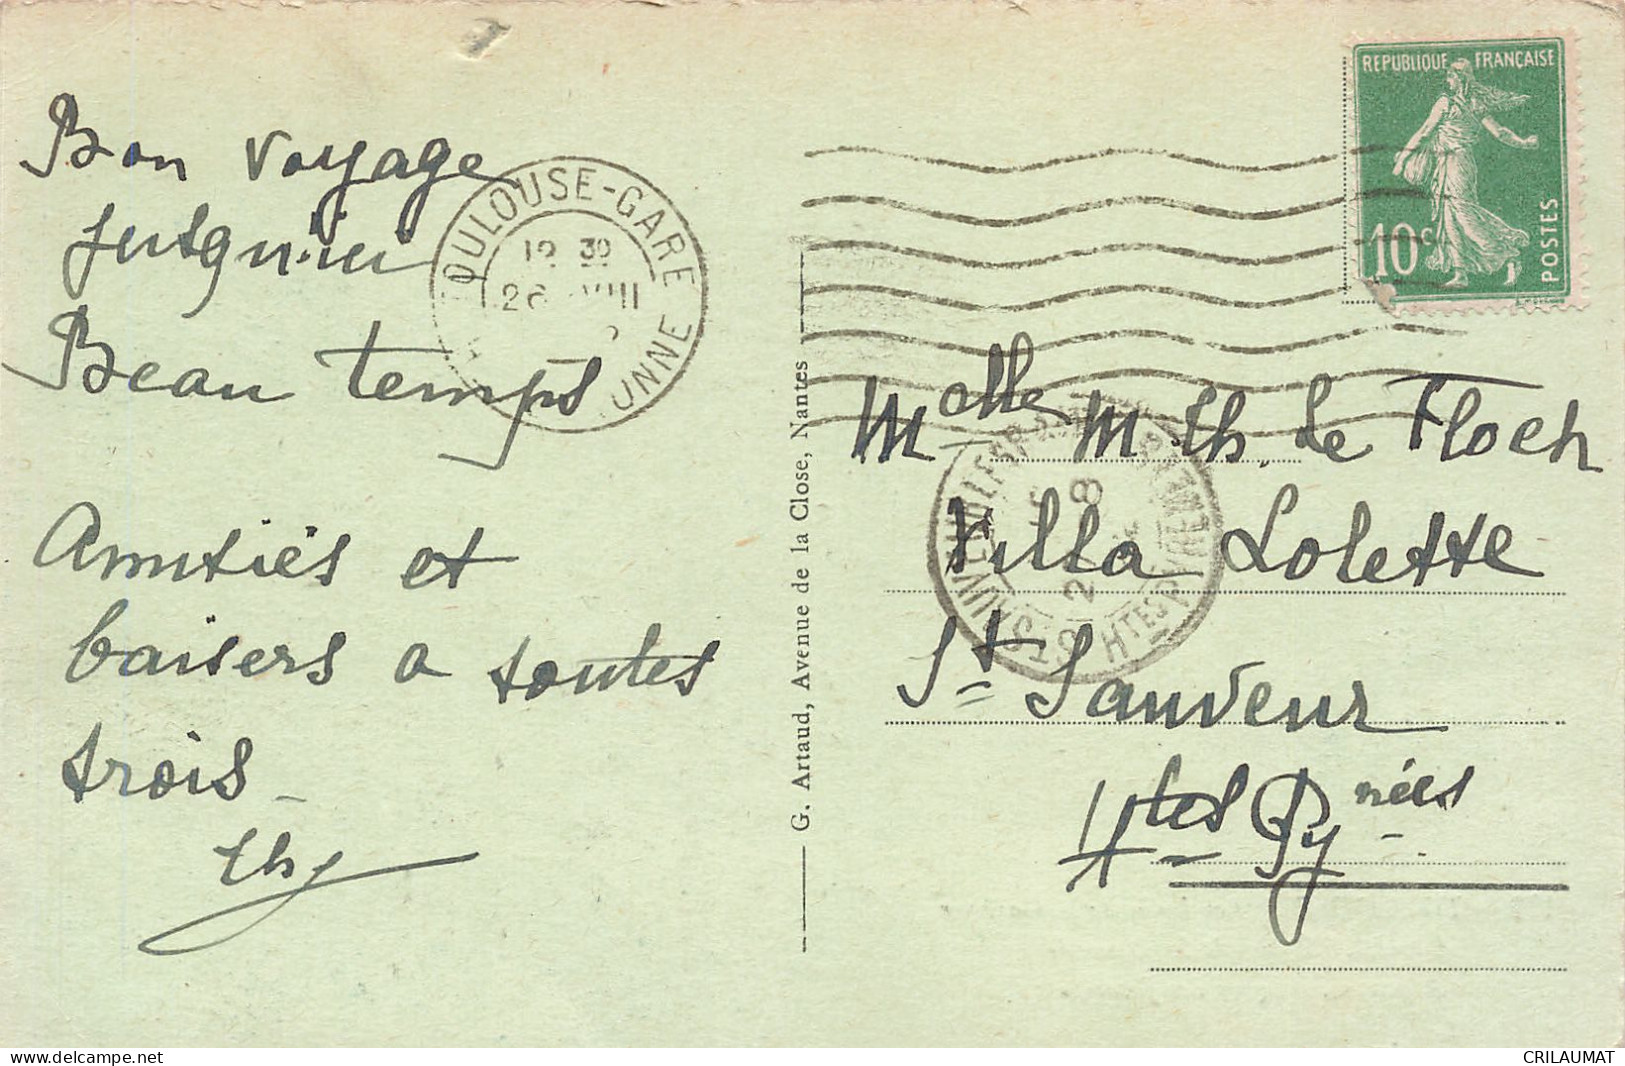 Bon voyage
jusqu'ici
Beau temps
Amitiés et
baisers a toutes
trois_
thy
TOULOUSE-GARE
12 30
26 VIII
G. Artaud, Avenue de la Close, Nantes
REPUBLIQUE FRANÇAISE
10c
POSTES
Melle M Th. Le Floch
Villa Lolette
St Sauveur
Htes Pyrénées
HTES PYRENEES
delcampe.net
CRILAUMAT